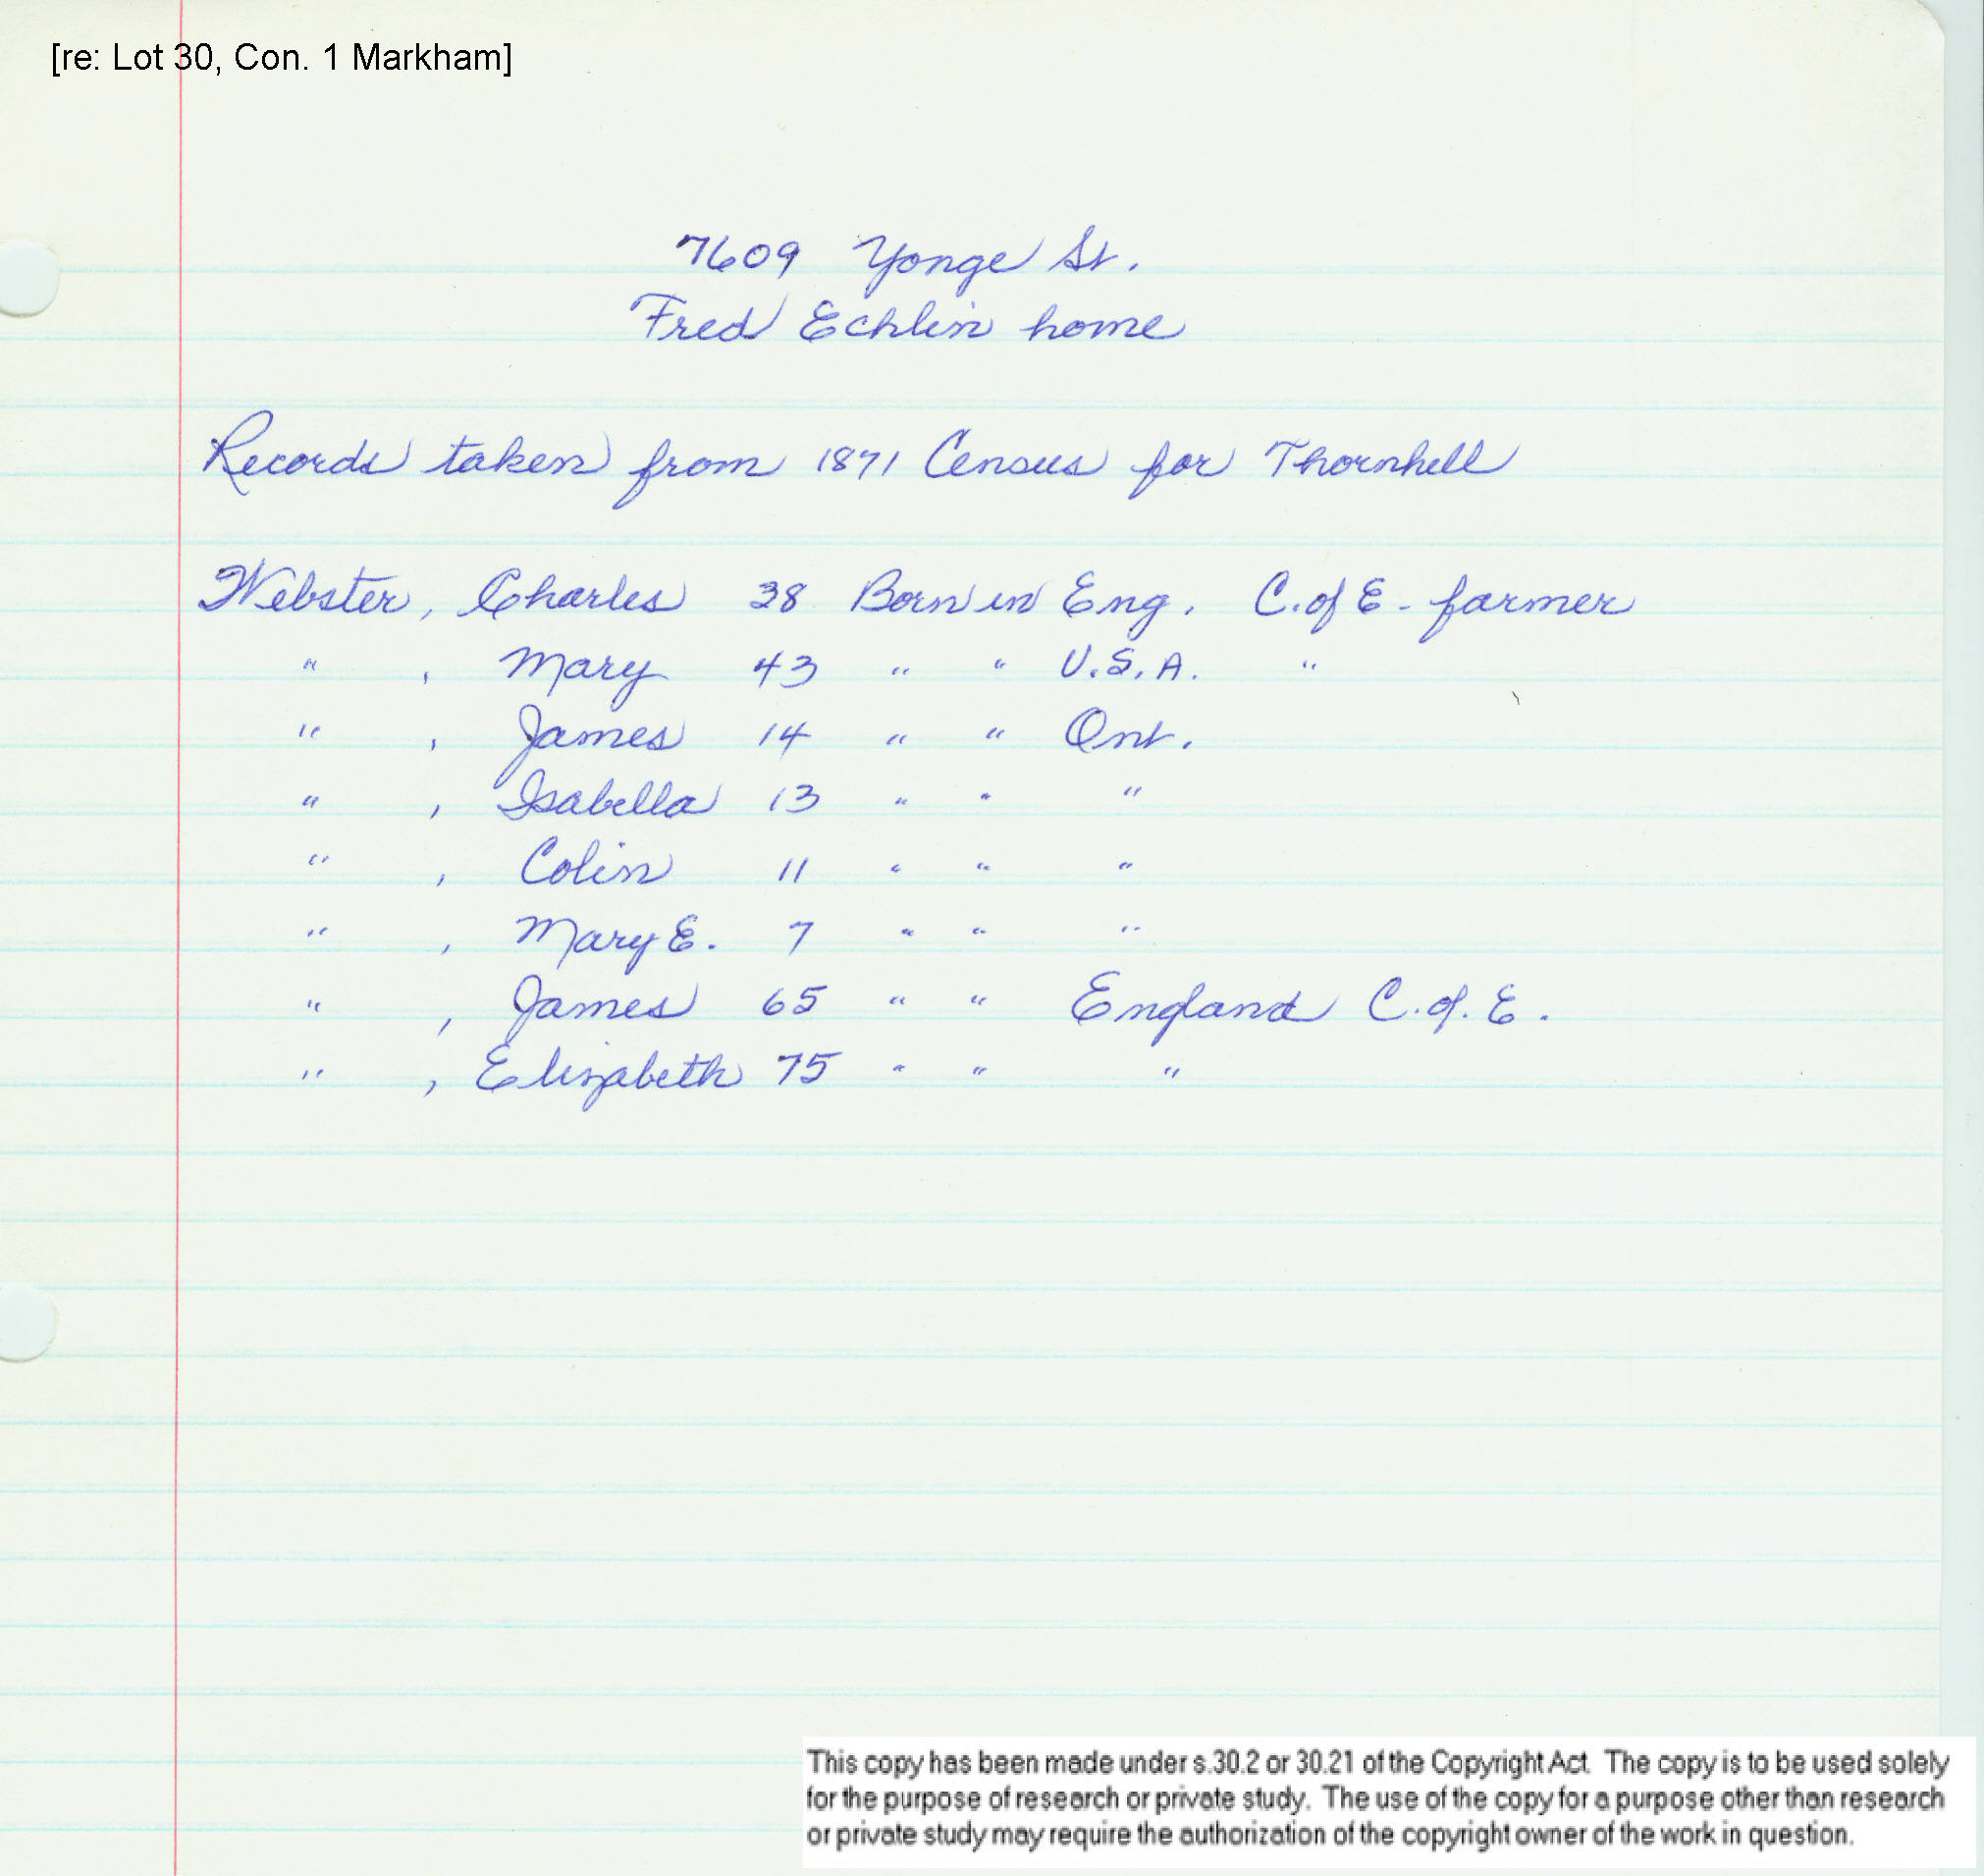 [re: Lot 30, Con. 1 Markham]
7609 Yonge St.
Fred Echlin home
Records taken from 1871 Census for Thornhill
Webster, Charles 38 Born in Eng. C. of E - farmer
" , Mary 43 " " U.S.A. "
" , James 14 " " Ont.
" , Isabella 13 " " "
" , Colin 11 " " "
" , Mary E. 7 " " "
" , James 65 " " England C. of. E.
" , Elizabeth 75 " " "
This copy has been made under s.30.2 or 30.21 of the Copyright Act. The copy is to be used solely
for the purpose of research or private study. The use of the copy for a purpose other than research
or private study may require the authorization of the copyright owner of the work in question.